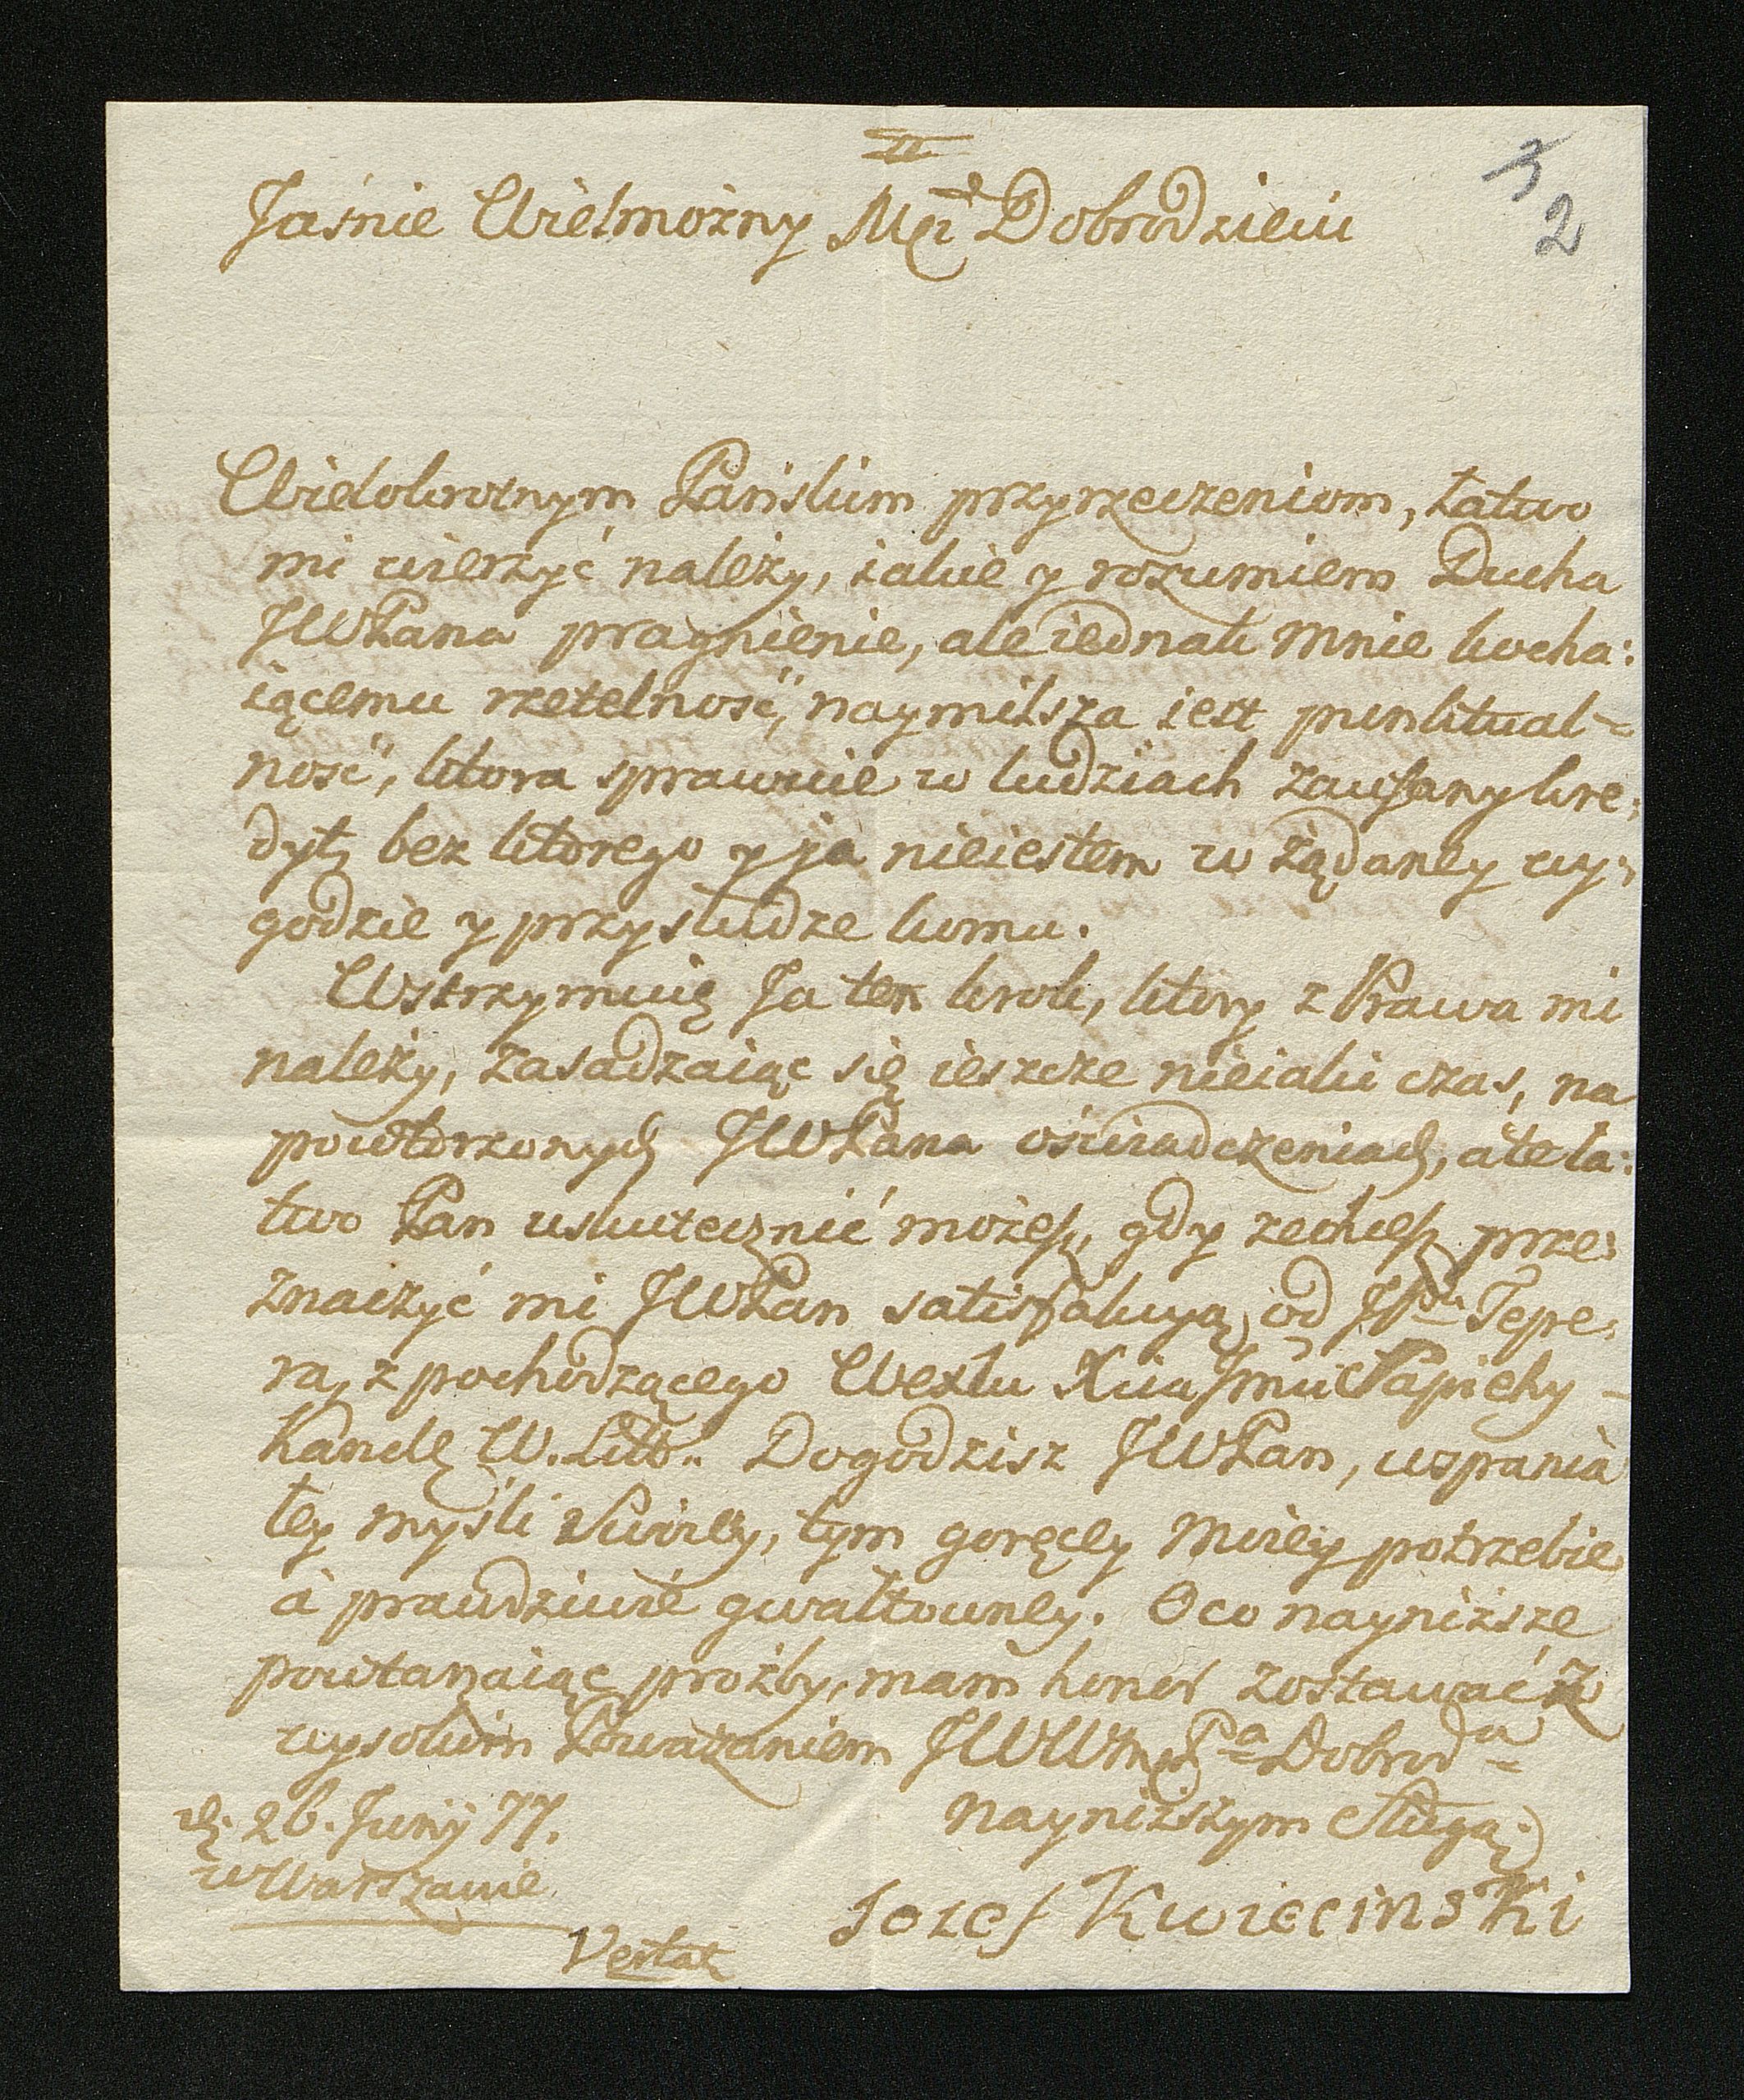 II
3
2
Jaśnie Wielmożny Mci Dobrodzieiu
Wielokrotnym Pańskim przyrzeczeniom, łatwo
mi wierzyć należy, iakie y rozumiem Ducha
JWPana pragnienie, ale iednak mnie kocha:
iącemu rzetelność, naymilsza iest punktual=
ność, ktora sprawuie w ludziach zaufany kre:
dyt, bez ktorego y ja nieiestem w żądaney wy:
godzie y przysłudze komu.
Wstrzymuię Ja ten krok, ktory z Prawa mi
należy, zasadzaiąc się ieszcze nieiaki czas, na
powtorzonych JWPana oświadczeniach, ale ła:
two Pan uskutecznić możesz, gdy zechcesz prze:
znaczyć mi JWPan satisfakcyą od JPna Tepe:
ra, z pochodzącego Wexlu Xcia Jmci Sapiehy
Kancle W. Litt. Dogodzisz JWPan, wspania
łey myśli Swoiey, tym goręcey moiey potrzebie
a prawdziwie gwałtowney. O co nayniższe
powtarzaiąc prożby, mam honor zostawać z
wysokim Poważaniem JWWMPa Dobrodа
nayniższym Sługą
d. 26. Junij 77.
w Warszawie
Jozef Kwiecinski
Vertat